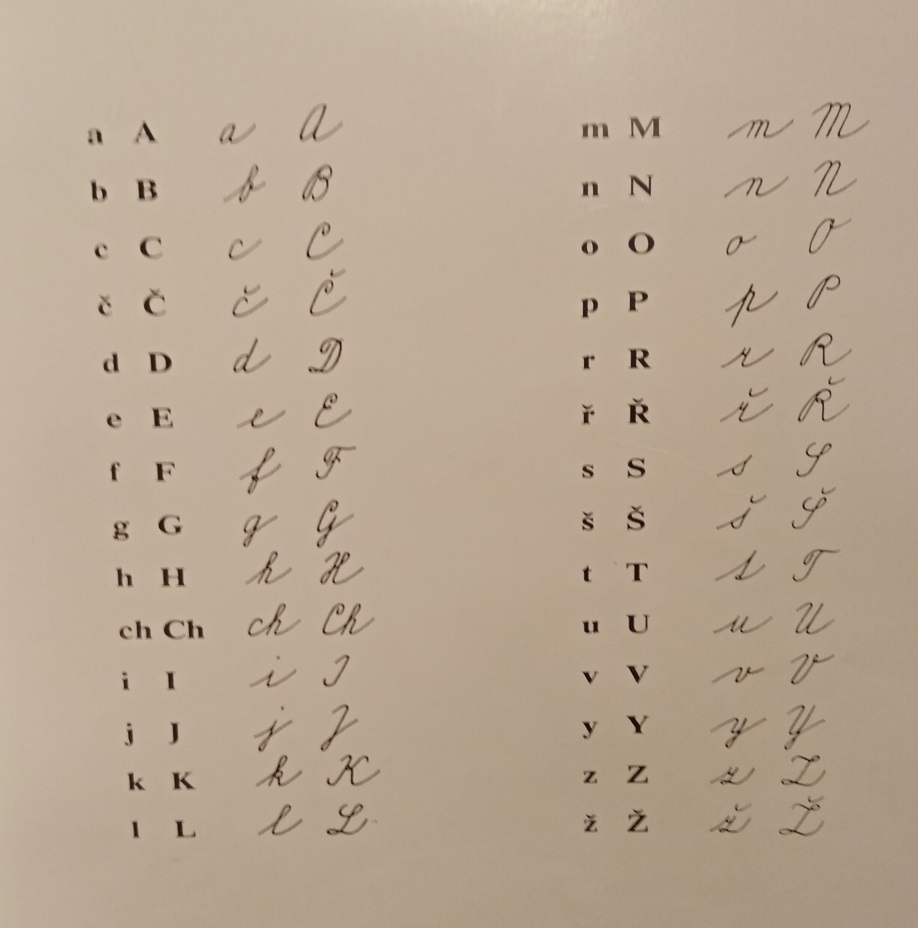 a A a A
b B b B
c C c C
č Č č Č
d D d D
e E e E
f F f F
g G g G
h H h H
ch Ch ch Ch
i I i I
j J j J
k K k K
l L l L
m M m M
n N n N
o O o O
p P p P
r R r R
ř Ř ř Ř
s S s S
š Š š Š
t T t T
u U u U
v V v V
y Y y Y
z Z z Z
ž Ž ž Ž